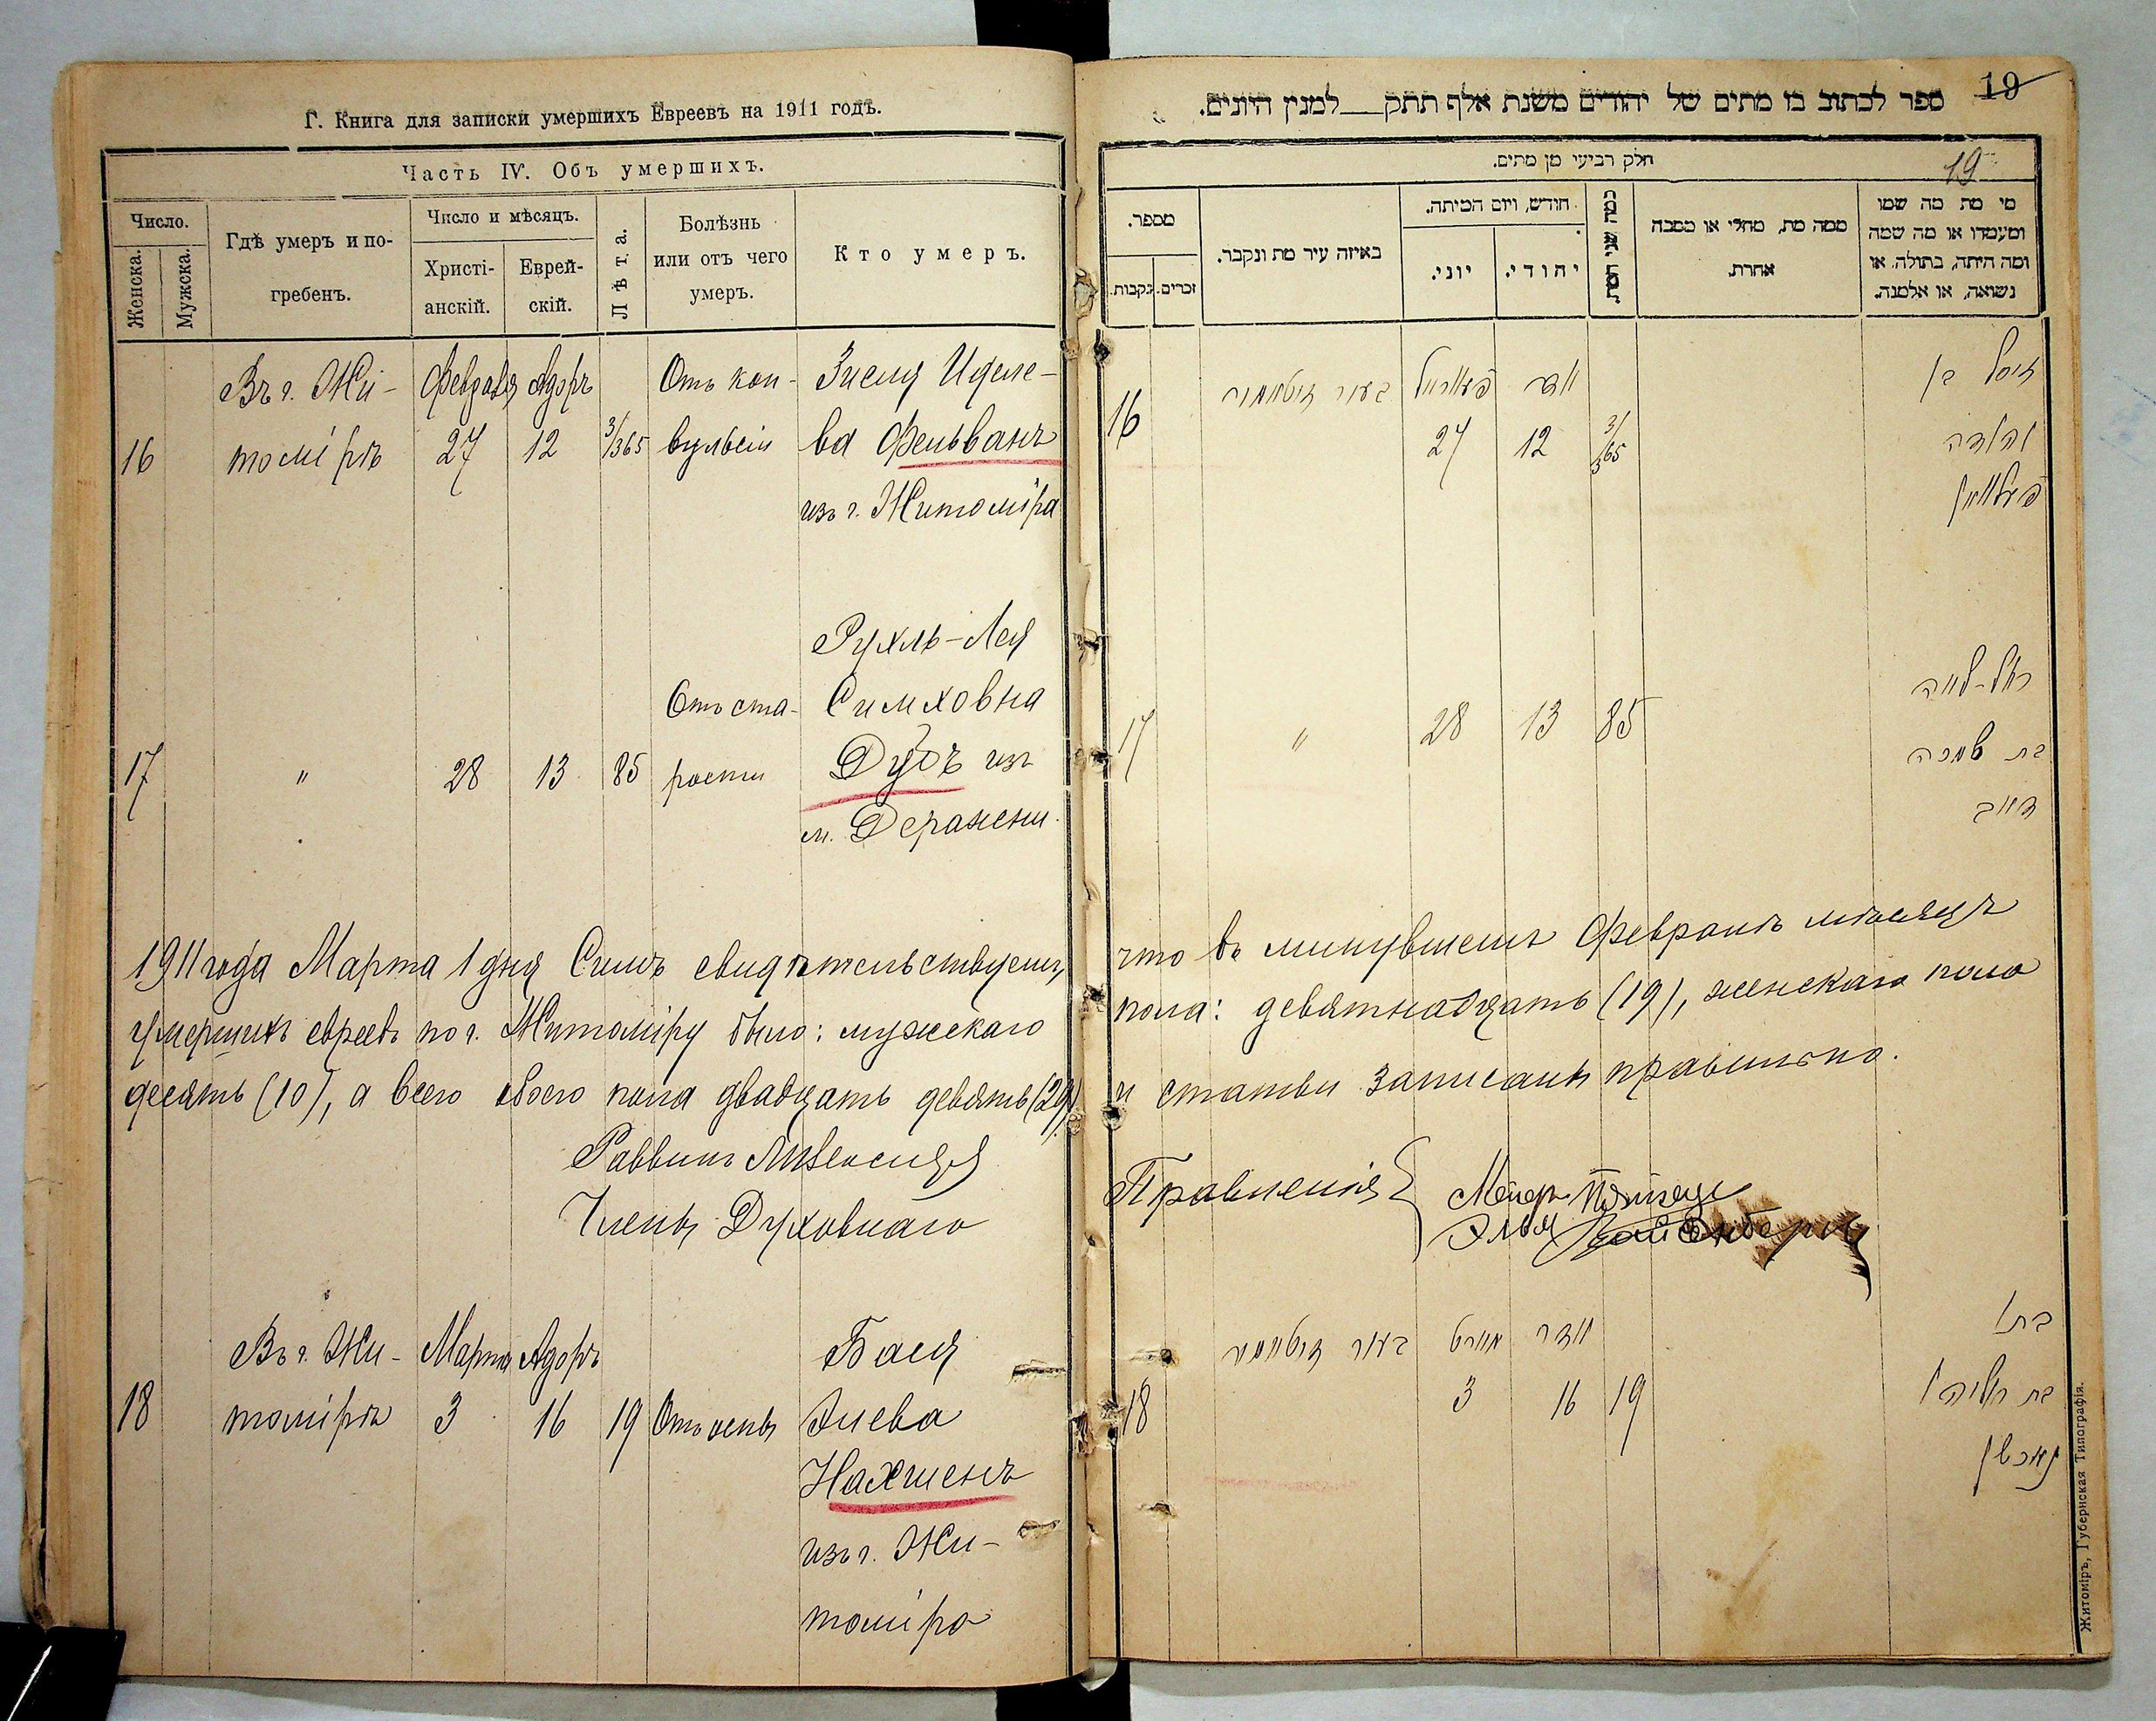 Г. Книга для записки умершихъ Евреевъ на 1911 годъ.
Часть IV. Объ умершихъ.
Число.
Женска.
Мужска.
Гдѣ умеръ и по-
гребенъ.
Число и мѣсяцъ.
Христі-
анскій.
Еврей-
скій.
Лѣта.
Болѣзнь
или отъ чего
умеръ.
Кто умеръ.
16
Въ г. Жи-
томірѣ
Февраля
27
Адоръ
12
3/365
Отъ кон-
вульсіи
Зисля Иделе-
ва Фельванъ
изъ г. Житоміра
17
"
28
13
85
Отъ ста-
рости
Рухль-Лея
Симховна
Дубъ изъ
м. Деражни.
1911 года Марта 1 дня Симъ свидѣтельствуемъ,
умершихъ евреевъ по г. Житоміру было: мужскаго
десять (10), а всего обоего пола двадцать девять (29)
Раввинъ
Члены Духовнаго
18
Въ г. Жи-
томірѣ
Марта
3
Адоръ
16
19
Отъ оспы
Бася
Элева
Нахшенъ
изъ г. Жи-
томіра
ספר לכתוב בו מתים של יהודים משנת אלף תתק__למנין היונים.
19
חלק רביעי מן מתים.
19
מספר.
נקבות.
זכרים.
באיזה עיר מת ונקבר.
חודש, ויום המיתה.
יוני.
יהודי.
כמה שני המת.
ממה מת, מחלי או מסבה
אחרת.
מי מת מה שמו
ומעמדו או מה שמה
ומה היתה, בתולה, או
נשואה, או אלמנה.
16
בעיר זיטאמיר
27
אדר
12
3/365
17
"
28
13
85
רחל-לאה
בת שמחה
דוב
что въ минувшемъ Февралѣ мѣсяцѣ
пола: девятнадцать (19), женскаго пола
и статьи записаны правильно.
Правленія
18
בעיר זיטאמיר
מארט
3
אדר
16
19
נאכשן
Житоміръ, Губернская Типографія.